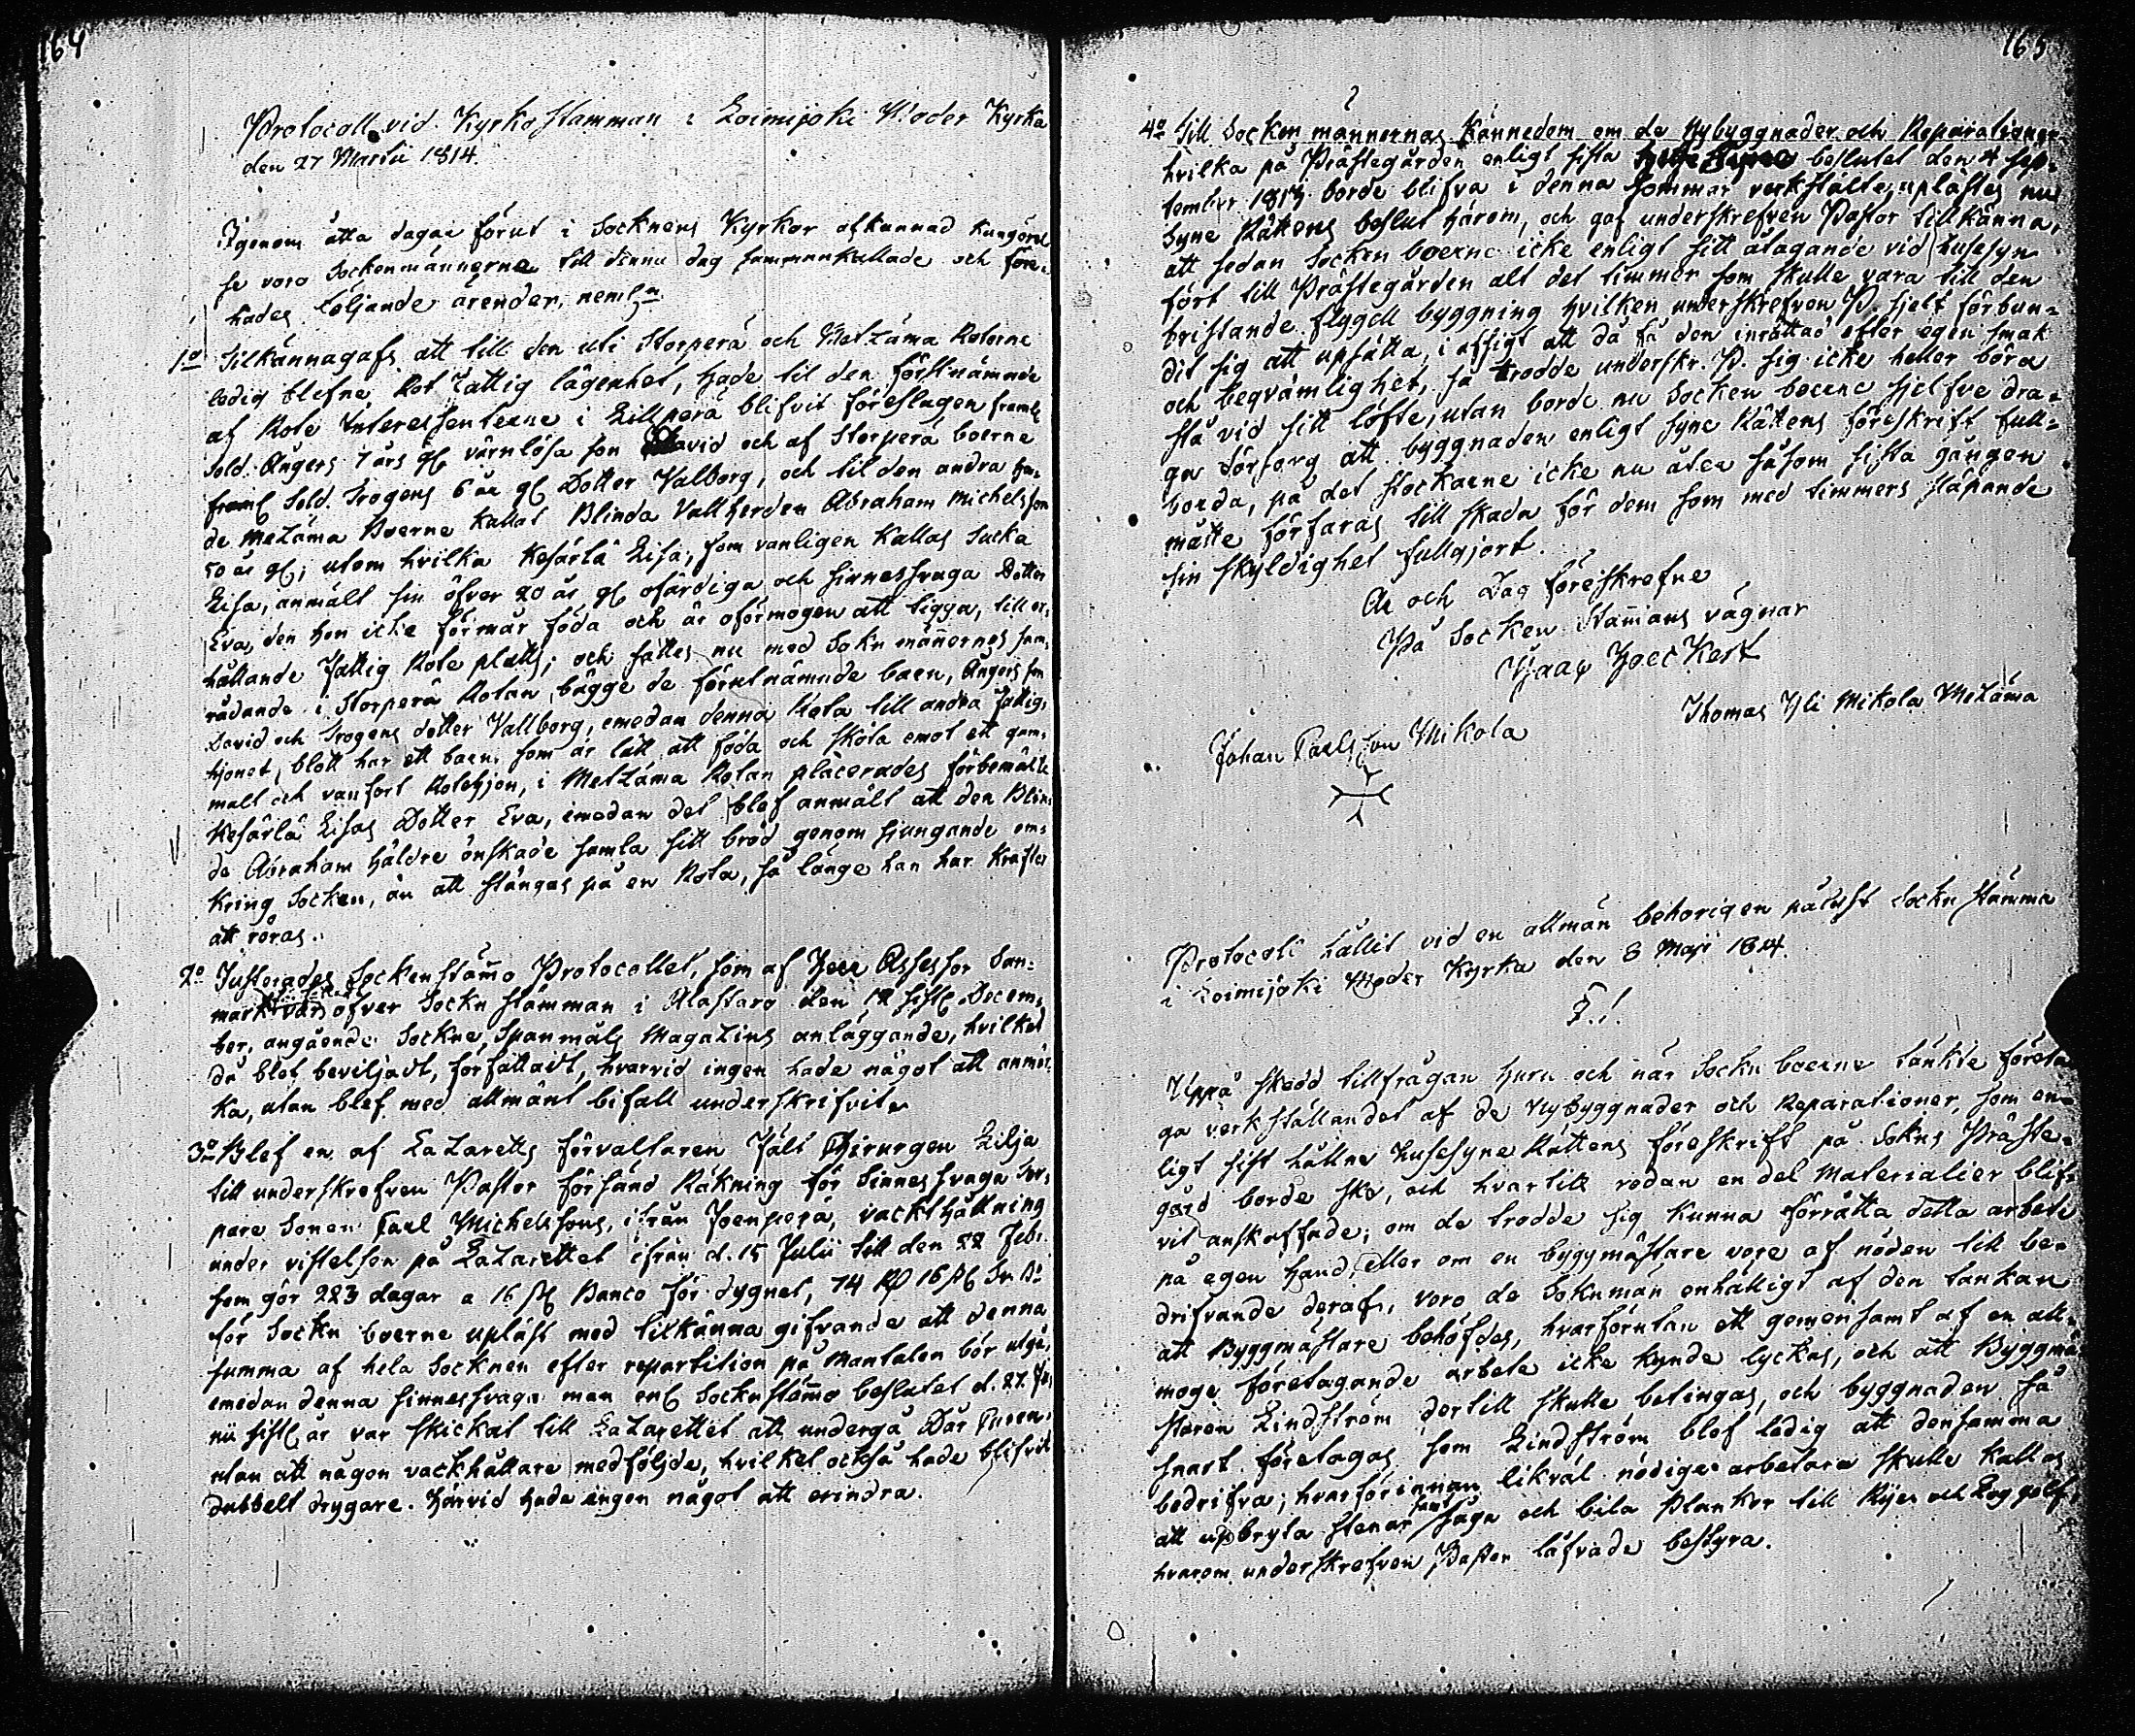 164
Protocoll vid Kyrkostämman i Loimijoki Moder Kyrka
den 27 Martii 1814.
Igenom åtta dagar förut i Socknens Kyrkor afkunnad Kungörel
se voro Sockenmännerne till denna dag sammankallade och före-
hades följande ärender, neml
1o Tilkännagafs att till den uti Storperä och Metzämä Roterne
ledig blefne Rot Fattig lägenhet, hade til den förstnämnde
af Rote Interessenterne i Lillperä blifvit föreslagen framl
Sold. Ångers 7 års gl värnlösa son David och af Storperä boerne
framl Sold. Trogens 6 år gl Dotter Valborg, och til den andra
de Metzämä Boerne kallat Blinda Vallherden Abraham Michelsson
50 år gl; utom hvilka Kesärlä Lisa, som vanligen kallas Sucka
Lisa, anmält sin öfver 20 år gl ofärdiga och sinnessvaga Dotter
Eva, den hon icke förmår föda och är oförmögen att tigga, till er-
hållande Fattig Rote platts; och fattes nu med Sokn männernes sam-
rådande i Storperä Rotan, bägge de förutnämnde barn, Ångers son
David och Trogens dotter Vallborg, emedan denna Rota till andra Fattig-
hjonet, blott har ett barn, som är lätt att föda och sköta emot ett gam-
malt och vanfört Rotehjon, i Metzämä Rotan placerades förbemälte
Kesärlä Lisas Dotter Eva, emedan det blef anmält att den Blin-
de Abraham häldre önskade samla sitt bröd genom sjungande om-
kring Socken, än att stängas på en Rota, så länge han har krafter
att röras.
2o Justerades Sockenstämo Protocollet, som af Herr Assessor San-
mark öfver Sockn stämman i Alastaro den 12 sistl Decem-
ber, angående Sockne Spanmåls Magazins anläggande, hvilket
då blef beviljadt, författadt, hvarvid ingen hade något att anmär-
ka, utan blef med allmänt bifall underskrifvit.
3o Blef en af Lazaretts förvaltaren Fält Chirurgen Lilja
till underskrefven Pastor försänd Räkning för Sinnessvaga Tor-
pare Sonen Carl Michelssons, ifrån Joenperä, vackthållning
under vistelsen på Lazarettet ifrån d. 15 Julii till den 22 Febr.
som gör 223 dagar a 16 sk Banco för dygnet, 74 Rd 16 sk
för Sockn boerne upläst med tilkänna gifvande att denna
summa af hela Socknen efter repartition på Mantalen bör utgå,
emedan denna sinnessvaga man enl Socknstämo beslutet d. 27. Ju
nii sistl år var skickat till Lazarettet att undergå Där Curen
utan att någon vackhållare medföljde, hvilket också hade blifvit
dubbelt drygare. Härvid hade ingen något att erindra.
165
4o Till Socken männernas kännedom om de Nybyggnader och Reparationer
hvilka på Prästegården enligt sista beslutet den 4 Sep-
tember 1813 borde blifva i denna sommar verkstälte, uplästes nu
Syne Rättens beslut härom, och gaf underskrefven Pastor tillkänna,
att sedan Socken boerne icke enligt sitt åtagande vid Husesyn
fört till Prästegården alt det timmer som skulle vara till den
bristande flygell byggning hvilken underskrefven P. sjelf förbun-
dit sig att upsätta, i afsigt att då få den inrättad efter egen smak
och beqvämlighet, så trodde underskr. P. sig icke heller böra
stå vid sitt löfte, utan borde nu Socken boerne sjelfve dra-
ga försorg att byggnaden enligt Syne Rättens föreskrift full-
borda, på det stockarne icke nu åter såsom sista gången
måtte förfaras till skada för dem som med timmers släpande
sin skyldighet fullgjort.
År och Dag föreskrefne
På Socken Stämans vägnar
Thomas Yli Mikola Metzämä
Johan Carlsson Mikola
Protocoll hållit vid en allmän behörigen pålyst Sockn stämma
i Loimijoki Moder Kyrka den 8 Maji 1814.
§.1.
Uppå skedd tillfrågan huru och när Sockn boerne tänkte företa
ga verkställandet af de Nybyggnader och Reparationer, som en-
ligt sist hållne Husesyne Rättens föreskrift på Sokns Präste-
gård borde ske, och hvartill redan en del Materialier blif-
vit anskaffade; om de trodde sig kunna förrätta detta arbete
på egen hand, eller om en byggmästare vore af nöden till be-
drifvande deraf, voro de Soknmän enhälligt af den tankan
att Byggmästare behöfdes, hvarförutan ett gemensamt af en all-
moge företagande arbete icke kunde lyckas, och att Byggmä
staren Lindström dertill skulle betingas, och byggnaden så
snart företagas som Lindström blef ledig att densamma
bedrifva; hvarförinnan likväl nödige arbetare skulle kallas
att upbryta stenar samt såga och bila Plankor till Rijer och Log golf,
hvarom underskrefven Pastor låfvade bestyra.